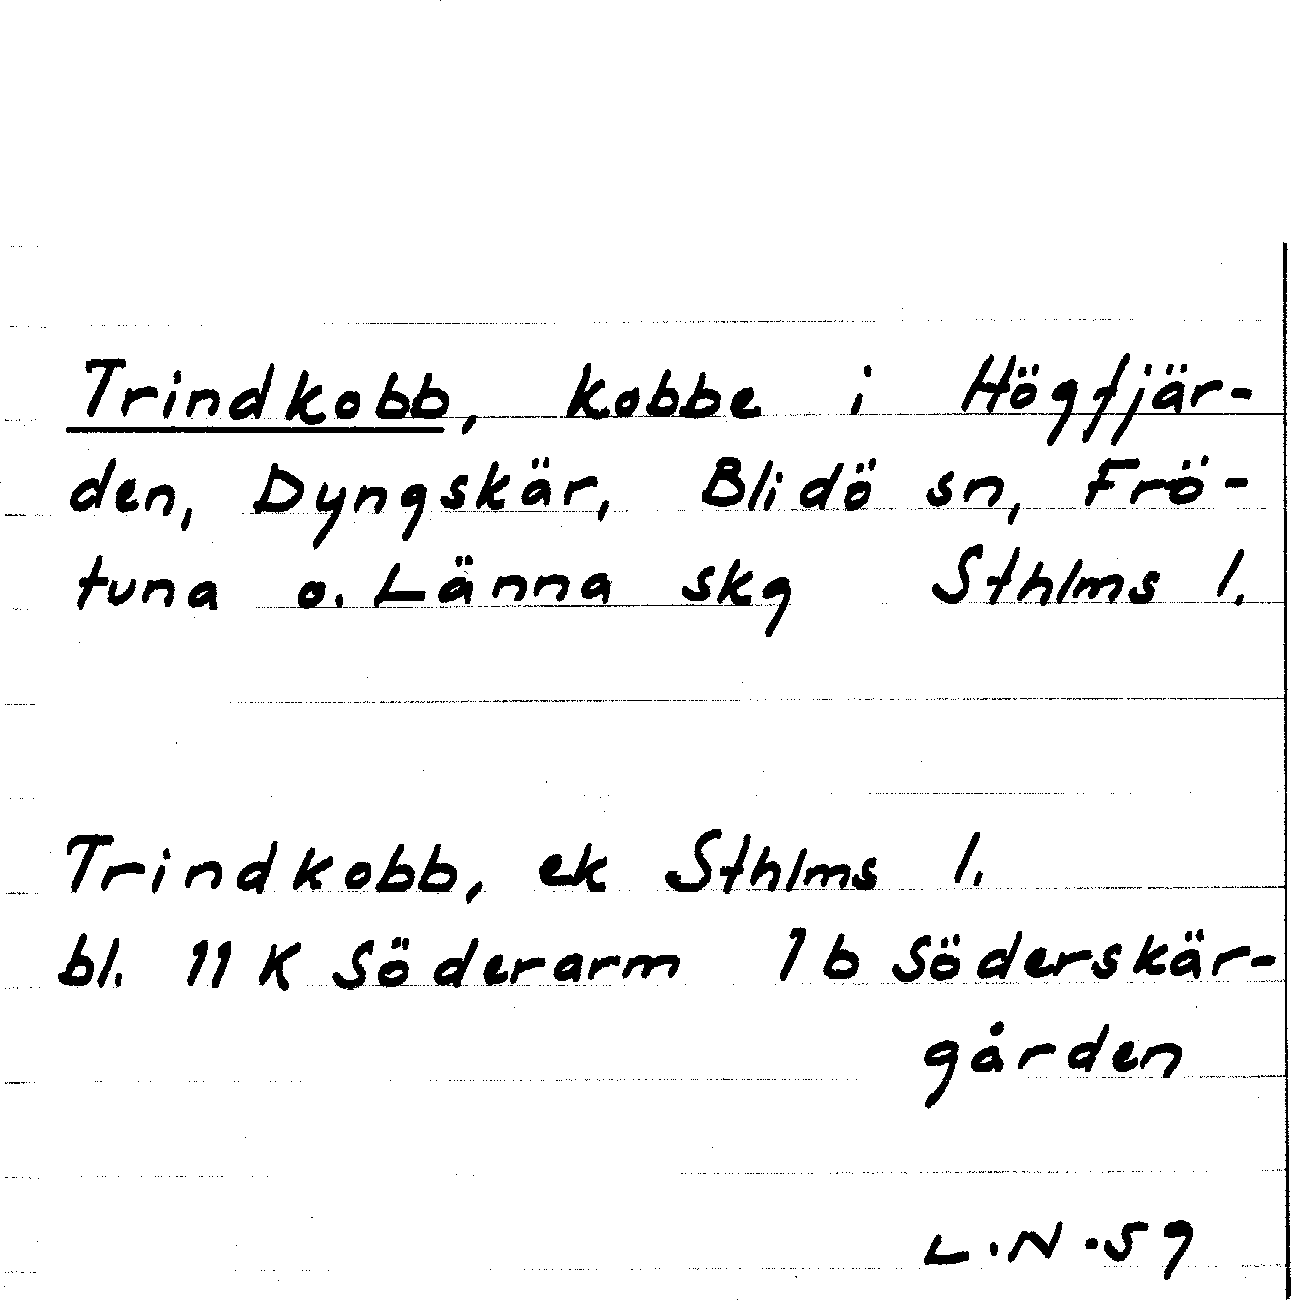 Trindkobb, kobbe i Högfjär-
den, Dyngskär, Blidö sn, Frö-
tuna o. Länna skg Sthlms l.
Trindkobb, ek Sthlms l.
bl. 11 K Söderarm 1b Söderskär-
gården
L.N.59